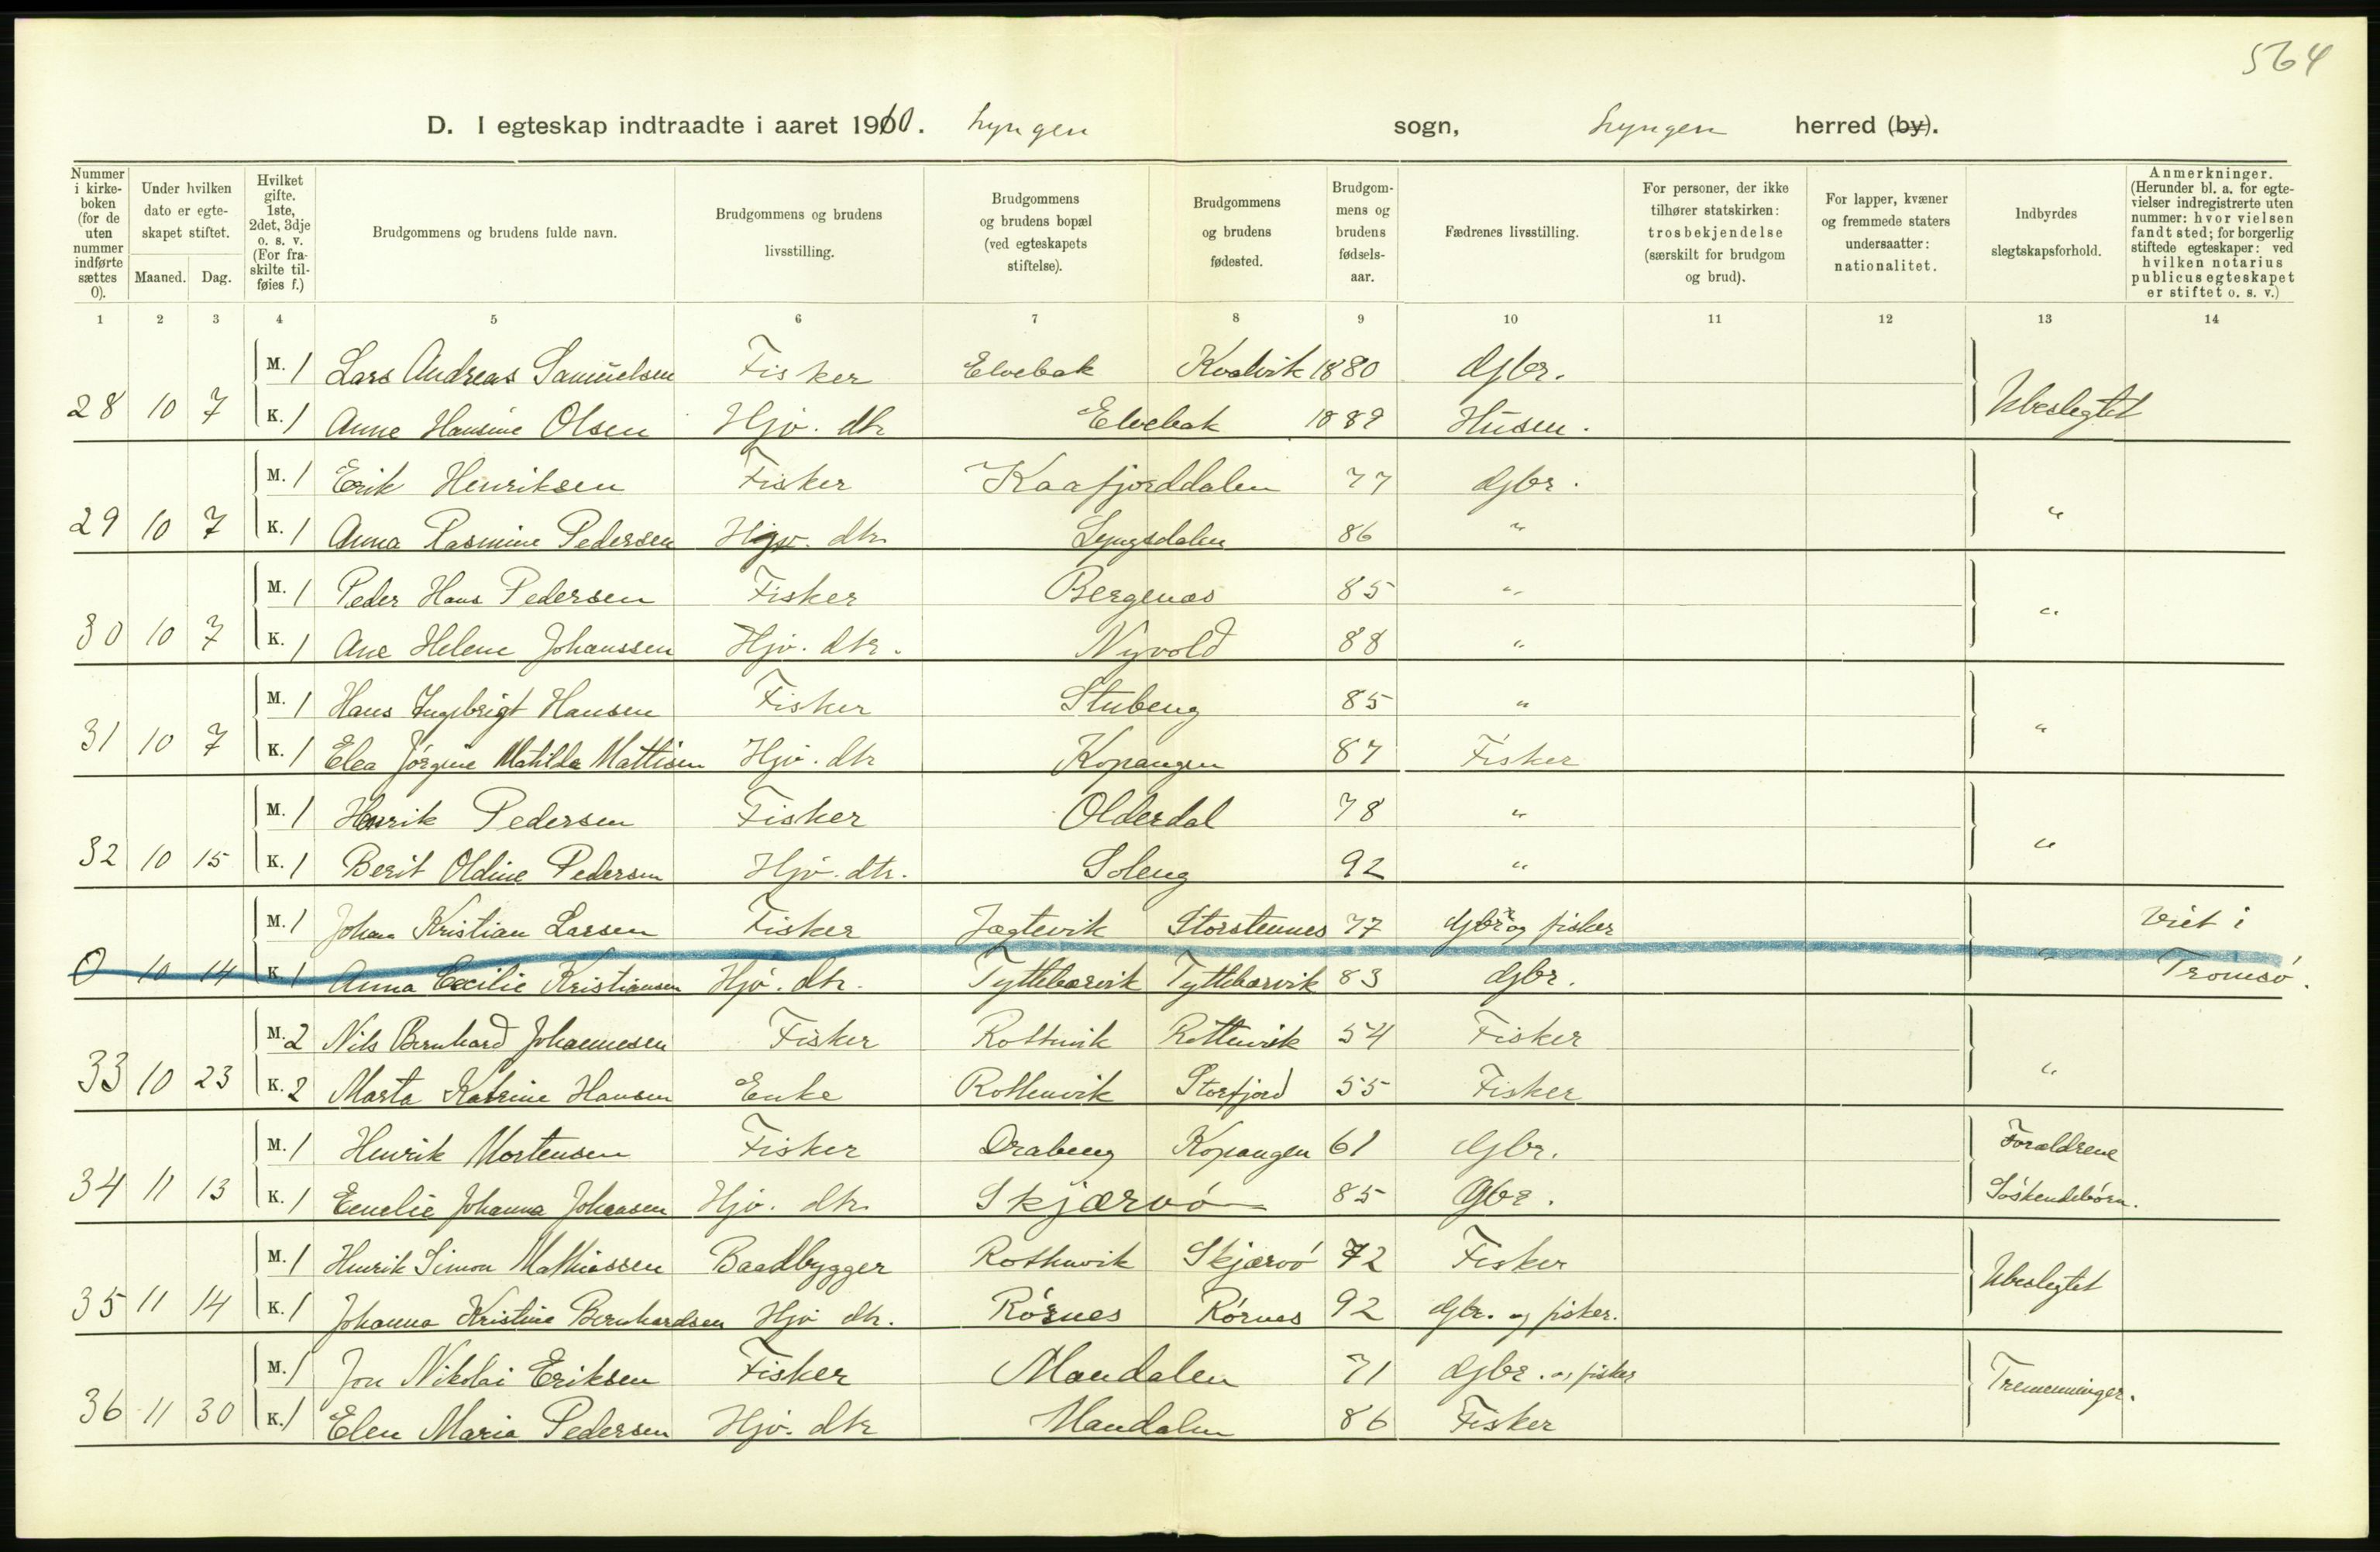 564
D. I egteskap indtraadte i aaret 1910. Lyngen sogn, Lyngen herred (by).
Nummer i kirke-boken (for de uten nummer indførte sættes 0).
Under hvilken dato er egte-skapet stiftet.
Maaned. Dag.
Hvilket gifte. 1ste, 2det, 3dje o. s. v. (For fra-skilte til-føies f.)
Brudgommens og brudens fulde navn.
Brudgommens og brudens livsstilling.
Brudgommens og brudens bopæl (ved egteskapets stiftelse).
Brudgommens og brudens fødested.
Brudgom-mens og brudens fødsels-aar.
Fædrenes livsstilling.
For personer, der ikke tilhører statskirken: trosbekjendelse (særskilt for brudgom og brud).
For lapper, kvæner og fremmede staters undersaatter: nationalitet.
Indbyrdes slegtskapsforhold.
Anmerkninger. (Herunder bl. a. for egte-vielser indregistrerte uten nummer: hvor vielsen fandt sted; for borgerlig stiftede egteskaper: ved hvilken notarius publicus egteskapet er stiftet o. s. v.)
1 2 3 4 5 6 7 8 9 10 11 12 13 14
M. 1 Lars Andreas Samuelsen Fisker Elvebak Kvalvik 1880 Gbr.
28 10 7 K. 1 Anne Hansine Olsen Hjv. dtr Elvebak 1889 Husm. Ubeslegtet
M. 1 Erik Henriksen Fisker Kaafjorddalen 77 Gbr.
29 10 7 K. 1 Anna Rasmine Pedersen Hjv. dtr. Lyngsdalen 86 " "
M. 1 Peder Hans Pedersen Fisker Bergenæs 85 "
30 10 7 K. 1 Ane Helene Johanssen Hjv. dtr. Nyvold 88 " "
M. 1 Hans Ingebrigt Hansen Fisker Stubeng 85 "
31 10 7 K. 1 Elea Jørgine Matilda Mattisen Hjv. dtr Kopangen 87 Fisker "
M. 1 Henrik Pedersen Fisker Olderdal 78 "
32 10 15 K. 1 Berit Oldine Pedersen Hjv. dtr. Soleng 92 " "
M. 1 Johan Kristian Larsen Fisker Jægtevik Storstennes 77 Gbr. og fisker Viet i
0 10 14 K. 1 Anna Cecilie Kristiansen Hjv. dtr. Tyttebærvik Tyttebærvik 83 Gbr. " Tromsø.
M. 2 Nils Bernhard Johannesen Fisker Rottenvik Rottenvik 54 Fisker
33 10 23 K. 2 Marta Katrine Hansen Enke Rottenvik Storfjord 55 Fisker "
M. 1 Henrik Mortensen Fisker Drabeng Kopangen 61 Gbr. Forældrene
34 11 13 K. 1 Emelie Johanna Johansen Hjv. dtr. Skjærvø 85 Gbr. Søskendebørn.
M. 1 Henrik Simon Mathiassen Baadbygger Rottenvik Skjærvø 72 Fisker
35 11 14 K. 1 Johanna Kristine Bernhardsen Hjv dtr. Rørnes Rørnes 92 Gbr. og fisker. Ubeslegtet
M. 1 Jon Nikolai Eriksen Fisker Mandalen 71 Gbr. og fisker
36 11 30 K. 1 Elen Maria Pedersen Hjv. dtr Mandalen 86 Fisker Tremenninger.